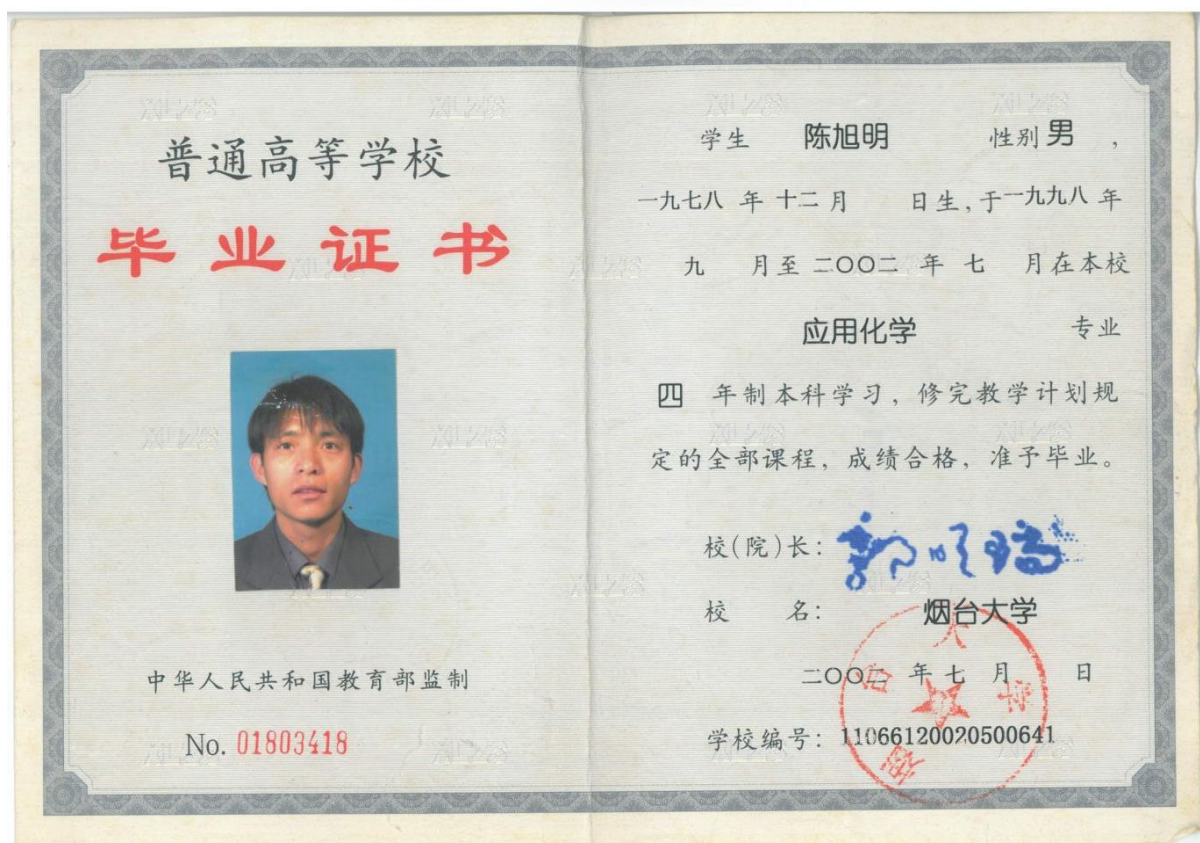 普通高等学校
毕业证书
中华人民共和国教育部监制
No. 01803418
学生 陈旭明 性别 男 ,
一九七八 年 十二 月 日生,于 一九九八 年
九 月至 二〇〇二 年 七 月在本校
应用化学 专业
四 年制本科学习,修完教学计划规
定的全部课程,成绩合格,准予毕业。
校(院)长:
校 名: 烟台大学
二〇〇二 年 七 月 日
学校编号: 110661200205000641
烟台大学